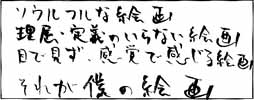 ソウルフルな絵画
理屈・定義のいらない絵画
目で見ず、感覚で感じる絵画
それが僕の絵画